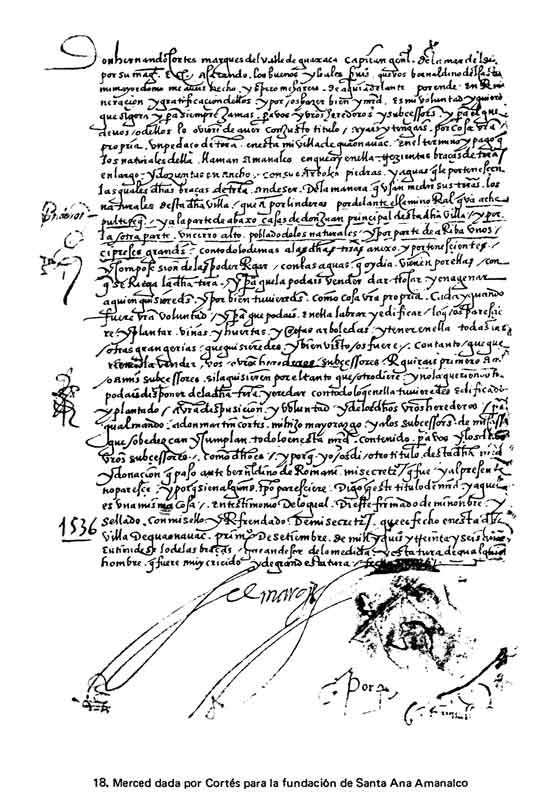 Don hernando Cortes marques del valle de guaxaca Capitan genl. de la nueva
por su mag. acatando los buenos y leales que vos bernaldino del
mi mayordomo me aveis hecho y espero me hareis de aqui adelante porende en Remu
neracion y gratificacion dellos y por os hazer bien y md. es mi voluntad y quiero
que agora y pa siempre jamas pa vos y vros herederos y subcessores y pa el que
de vos o dellos lo oviere de aver con justo titulo ayais y tengais por cosa vra
propria un pedaço de trra en esta mi villa de quaonavac en el termino y pago q
los naturales della llaman amanalco en que oy en ella trezientas braças de trra
en largo y dozientas en ancho con sus arboles piedras y aguas que le pertenescen
las quales dhas braças de trra an de ser de la manera q usan medir sus trras los
naturales desta dha villa que a por linderos por delante el camino Real q va a cha
pultepeq y a la parte de abaxo casas de don Juan principal desta dha villa y por
la otra parte un cerro alto poblado de los naturales y por parte de a Riba unos
cipreses grandes con todo lo demas a las dhas trras anexo y pertenesciente
con las aguas q oy dia vienen por ellas con
que se Riega la dha trra y pa que la podais vender dar trocar y enagenar
a quien quisieredes y por bien tuvieredes como cosa vra propria cada y quando
fuere vra voluntad y pa que podais en ella labrar y edificar lo q os paresçie
re y plantar viñas y huertas y otras arboledas y tener en ella todas las
otras grangerias que quisieredes y bien visto os fuere con tanto que que
riendola vender vos o vros herederos o subcessores Requirais primero a mi
o a mis subcessores si la quisieren por el tanto que otro diere y no la queriendo
podais disponer de la dha trra y eredar con todo lo q en ella tuvieredes edificado
y plantado a vra dispusicion y voluntad y de los dhos vros herederos
qual mando a don martin cortes mi hijo mayorazgo y a los subcessores de mi casa
que obedezcan y cumplan todo lo en esta md contenido pa vos y los dhos
vros subcessores como dho es y porq yo os di otro titulo desta dha md
y donacion q paso ante bernaldino de Romani mi secreto que y al presente
no paresce y porq si en algund tpo paresciere Digo q este titulo de md y aquel
es una misma cosa en testimonio de lo qual Di este firmado de mi nombre y
sellado con mi sello y Refrendado de mi secreto que es fecho en esta dha
villa de quaonavac primo de Setiembre de mill y quis y treinta y seis años
entiendese lo de las braças que an de ser de la medida y estatura de qualquier
hombre q fuere muy crecido y de grand estatura
1536
el marques
Por
18. Merced dada por Cortés para la fundación de Santa Ana Amanalco